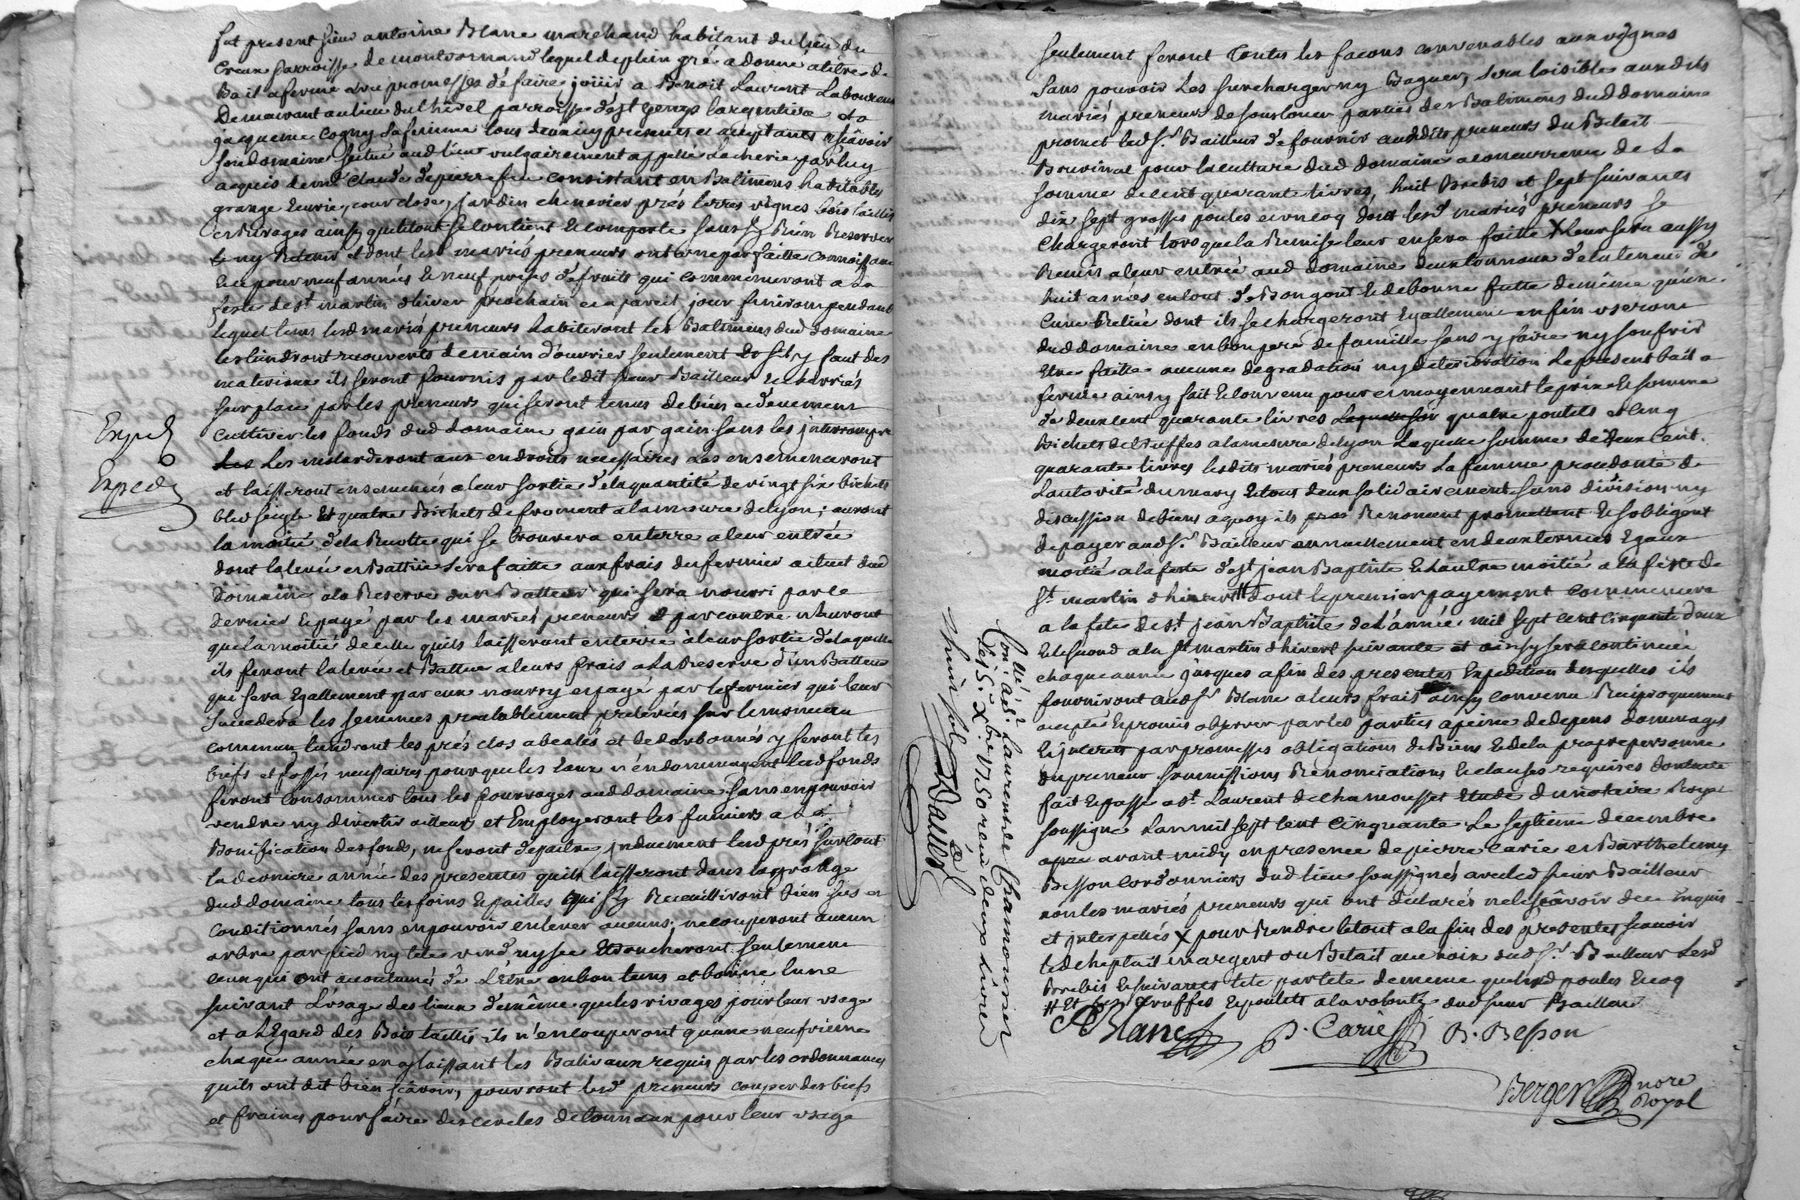 fut present sieur antoine Blanc marchand habitant du lieu du
Creux parroisse de montromand lequel de plein gré a donné a titre de
Bail a ferme avec promesses de faire jouir a Benoit Laurent Laboureur
Demeurant au lieu du Chavel parroisse de st genys largentiere et a
jacqueme Cogny sa femme tous deux icy presents et acceptants sçavoir
son domaine situé aud lieu vulgairement appellé par luy
acquis de md Claude depierrefeu consistant en Batimens habitables
grange Ecurie, cour close, jardin chenevier prés terres vignes bois taillis
et Rivages ainsy quil se contient Et comporte sans sy Rien Reserver
ny Retenir et dont les mariés preneurs ont une parfaitte connoissance
Et ce pour neuf années Et neuf prises de fruits qui commenceront a La
feste de st martin d'hiver prochain et a pareil jour finiront pendant
lequel tems lesd mariés preneurs habiteront les Batimens dud domaine
les tiendront recouverts de main d'ouvrier seulement Et sil y faut des
materiaux ils seront fournis par le dit sieur Bailleur Et charriés
sur place par les preneurs qui seront tenus de bien et deuement
Cultiver les fonds dud domaine gain par gain sans les interrompre
Les endroits necessaires ensemenceront
et laisseront ensemencés a leur sortie de la quantité de vingt six bichets
bled seigle Et quatre Bichets de froment a la mesure de Lyon; auront
la moitié de la Recolte qui se trouvera en terre a leur entrée
dont la levée et Battue sera faitte aux frais du fermier actuel dud
Domaine a la Reserve d'un Batteur qui sera nourri par le
dernier Et payé par les mariés preneurs Et par contre n'auront
que la moitié de celle quils laisseront en terre a leur sortie de laquelle
ils feront la levée et Battue a leurs frais a la Reserve d'un Batteur
qui sera Egallement par eux nourry et payé par le fermier qui leur
succedera les semences prealablement prelevées sur le monceau
commun, tiendront les prés clos y feront les
biefs et fossés necessaires pour que les Eaux n'endommagent lesd fonds
feront consommer tous les fourrages aud domaine sans en pouvoir
vendre ny divertir ailleurs et Employeront les fumiers a La
Bonification des fonds, ne feront depaitre induement lesd prés surtout
la derniere année des presentes quils laisseront dans la grange
dud domaine tous les foins Et pailles qui sy Recueilliront bien secs et
conditionnés sans en pouvoir enlever aucuns; ne couperont aucun
arbre par pied ny tete verd ny sec Ebrancheront seulement
ceux qui ont accoutumés de L'Etre en bon tems et bonne lune
suivant L'usage des lieux de même que les rivages pour leur usage
et a L'Egard des Bois taillis ils n'en couperont qu'une neufvieme
chaque année en y laissant les Baliveaux requis par les ordonnances
quils ont dit bien sçavoir, pourront lesd preneurs couper des biefs
et fraines pour faire des cercles de tonneaux pour leur usage
Exped
Exped
seulement feront Toutes les facons convenables aux vignes
sans pouvoir Les surcharger ny Baguer, sera loisible auxdits
mariés preneurs de souslouer parties des Batimens dud domaine
promet led sr. Bailleur de fournir auxdits preneurs du Betail
Bouvinal pour la culture dud domaine a concurrence de La
somme de cent quarante livres, huit Brebis et sept suivants
dix sept grosses poules et un coq dont lesd mariés preneurs se
Chargeront lorsque la Remise leur en sera faitte X Leur sera aussy
Remis a leur entrée aud domaine deux tonneaux de la teneur de
huit asnées en tout de Bon gout Et de bonne futte de même qu'une
Cuve Reliée dont ils se chargeront Egallement enfin useront
dud domaine en bon pere de famille sans y faire ny souffrir
Etre faitte aucune degradation ny deterioration Le present bail a
ferme ainsy fait Et convenu pour et moyennant le prix Et somme
de deux cent quarante livres quatre poulets et cinq
Bichets de truffes a la mesure de Lyon Laquelle somme de Deux Cent
quarante livres lesdits mariés preneurs La femme procedante de
Lautorité du mary Et tous deux solidairement sans division ny
discussion de biens a quoy ils Renoncent promettent Et sobligent
de payer aud sr. Bailleur annuellement en deux termes Egaux
moitié a la feste de st jean Baptiste Et l'autre moitié a la feste de
st. martin d'hiver # dont le premier payement commencera
a la fete de st. jean Baptiste de L'année mil sept cent cinquante deux
Et le second a la st martin d'hiver suivante et ainsy sera continué
chaque année jusques a fin des presentes Expedition desquelles ils
fourniront aud sr. Blanc a leurs frais ainsy Convenu Reciproquement
accepté Et promis observer par les parties a peine de depens dommages
Et interets par promesses obligations de Biens Et de la propre personne
du preneur soumissions Renonciations Et clauses requises dont acte
fait Et passé a st. Laurent de chamousset Etude du notaire Royal
soussigné L'an mil sept cent Cinquante Le septieme decembre
avant midy en presence de pierre Carie et Barthelemy
Besson Cordonniers dud lieu soussignés avec led sieur Bailleur
non les mariés preneurs qui ont declarés ne le sçavoir de ce Enquis
et interpellés X pour Rendre le tout a la fin des presentes sçavoir
led cheptail en argent ou Betail au choix dud sr. Bailleur Lesd
Brebis Et suivants tete par tete de meme que lesd poules Et coq
# Et les truffes Et poulets a la volonté dud sieur Bailleur
ABlanc P. Carie B. Besson
Berger nore
Royal
Collé a st. Laurent de Chamousset
les 5. Xbre 1750 reçu deux livres
huit sols